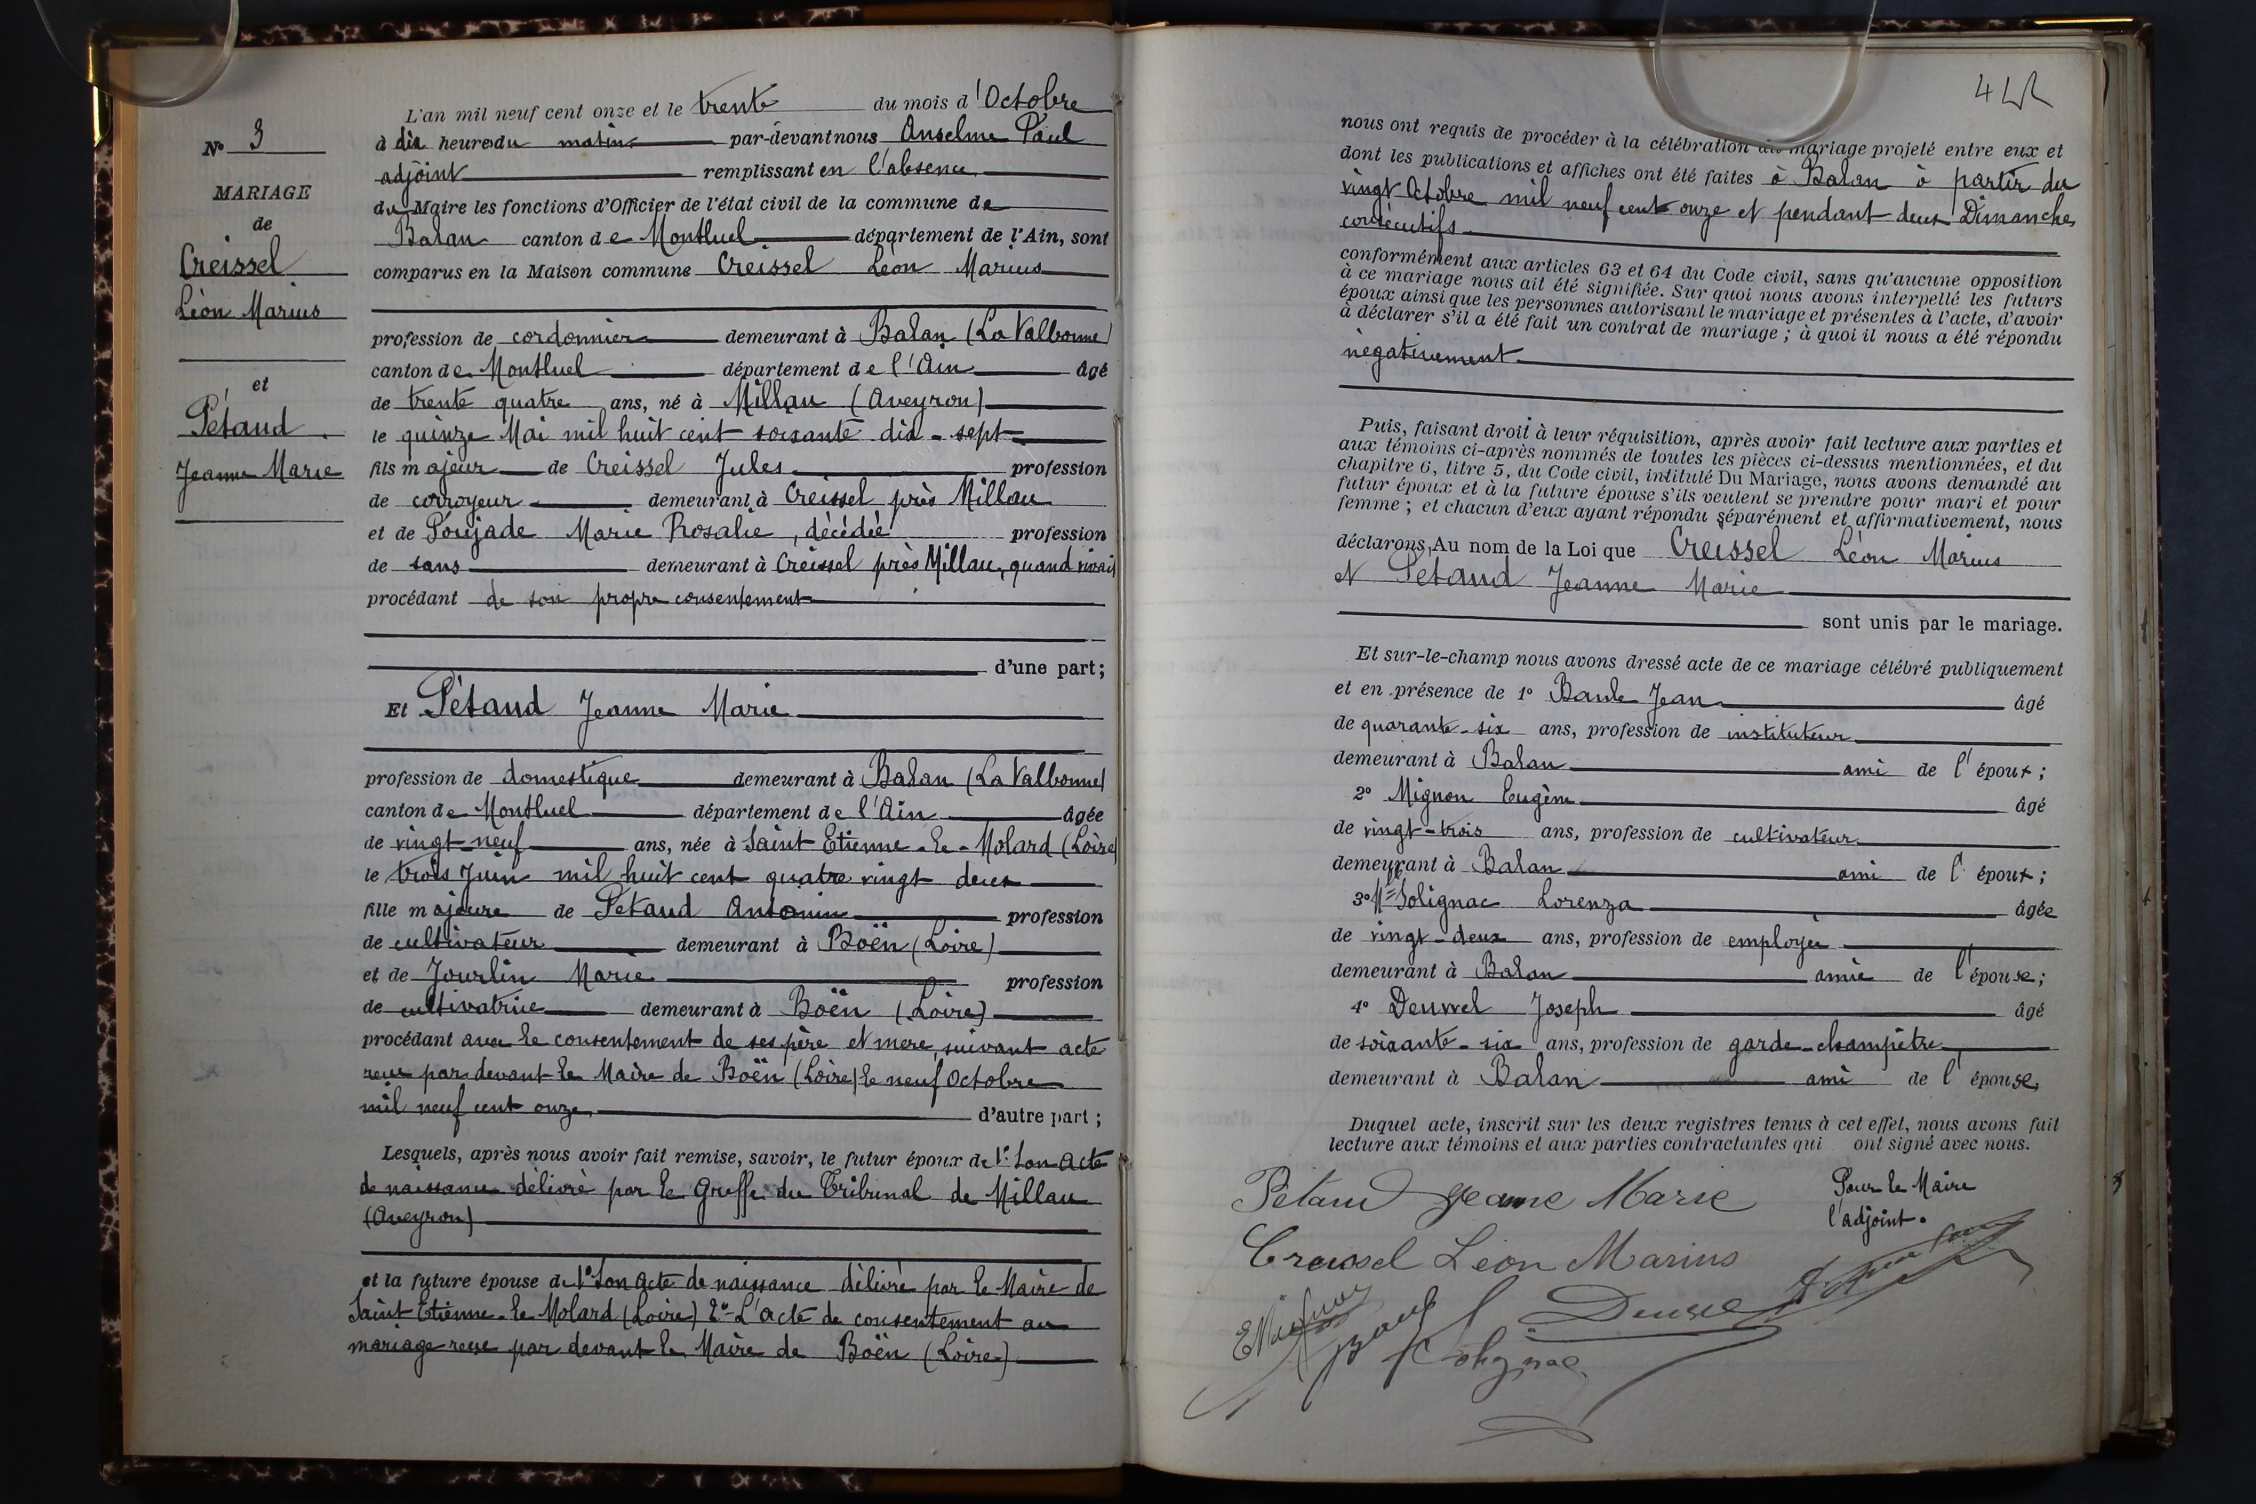 N° 3
MARIAGE
de
Creissel
Léon Marius
et
Pétaud
Jeanne Marie
L'an mil neuf cent onze et le trente du mois d'Octobre
à dix heures du matin par-devant nous Anselme Paul
adjoint remplissant en l'absence
du Maire les fonctions d'Officier de l'état civil de la commune de
Balan canton de Montluel département de l'Ain, sont
comparus en la Maison commune Creissel Léon Marius
profession de cordonnier demeurant à Balan (La Valbonne)
canton de Montluel département de l'Ain âgé
de trente quatre ans, né à Millau (Aveyron)
le quinze Mai mil huit cent soixante dix-sept
fils majeur de Creissel Jules profession
de corroyeur demeurant à Creissel près Millau
et de Poujade Marie Rosalie, décédée profession
de sans demeurant à Creissel près Millau, quand vivait
procédant de son propre consentement
d'une part;
Et Pétaud Jeanne Marie
profession de domestique demeurant à Balan (La Valbonne)
canton de Montluel département de l'Ain âgée
de vingt-neuf ans, née à Saint Etienne-le-Molard (Loire)
le trois Juin mil huit cent quatre vingt deux
fille majeure de Pétaud Antonin profession
de cultivateur demeurant à Boën (Loire)
et de Jourlin Marie profession
de cultivatrice demeurant à Boën (Loire)
procédant avec le consentement de ses père et mere, suivant acte
reçu par devant le Maire de Boën (Loire) le neuf Octobre
mil neuf cent onze, d'autre part;
Lesquels, après nous avoir fait remise, savoir, le futur époux de 1° Son acte
de naissance délivré par le Greffe du Tribunal de Millau
(Aveyron)
et la future épouse de 1° Son acte de naissance délivré par le Maire de
Saint Etienne-le Molard (Loire) 2° L'acte de consentement au
mariage reçu par devant le Maire de Boën (Loire)
nous ont requis de procéder à la célébration du mariage projeté entre eux et
dont les publications et affiches ont été faites à Balan à partir du
vingt Octobre mil neuf cent onze et pendant deux Dimanches
consécutifs
conformément aux articles 63 et 64 du Code civil, sans qu'aucune opposition
à ce mariage nous ait été signifiée. Sur quoi nous avons interpellé les futurs
époux ainsi que les personnes autorisant le mariage et présentes à l'acte, d'avoir
à déclarer s'il a été fait un contrat de mariage; à quoi il nous a été répondu
négativement
Puis, faisant droit à leur réquisition, après avoir fait lecture aux parties et
aux témoins ci-après nommés de toutes les pièces ci-dessus mentionnées, et du
chapitre 6, titre 5, du Code civil, intitulé Du Mariage, nous avons demandé au
futur époux et à la future épouse s'ils veulent se prendre pour mari et pour
femme; et chacun d'eux ayant répondu séparément et affirmativement, nous
déclarons, Au nom de la Loi que Creissel Léon Marius
et Pétaud Jeanne Marie
sont unis par le mariage.
Et sur-le-champ nous avons dressé acte de ce mariage célébré publiquement
et en présence de 1° Jean âgé
de quarante-six ans, profession de instituteur
demeurant à Balan ami de l'époux;
2° Mignon Eugène âgé
de vingt-trois ans, profession de cultivateur
demeurant à Balan ami de l'époux;
3° Mlle Solignac Lorenza âgée
de vingt-deux ans, profession de employée
demeurant à Balan amie de l'épouse;
4° Deuvrel Joseph âgé
de soixante-six ans, profession de garde-champêtre
demeurant à Balan ami de l'épouse,
Duquel acte, inscrit sur les deux registres tenus à cet effet, nous avons fait
lecture aux témoins et aux parties contractantes qui ont signé avec nous.
Pétaud Jeanne Marie
Pour le Maire
l'adjoint.
Creissel Léon Marius